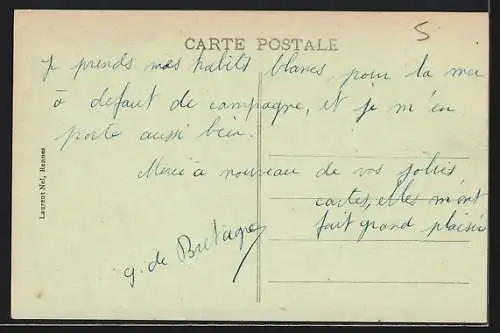 5
CARTE POSTALE
Je prends mes habits blancs, pour la mer
à défaut de campagne, et je m'en
porte aussi bien.
Merci à nouveau de vos jolies
cartes, elles m'ont
fait grand plaisir
g. de Bretagne
Laurent Nel, Rennes